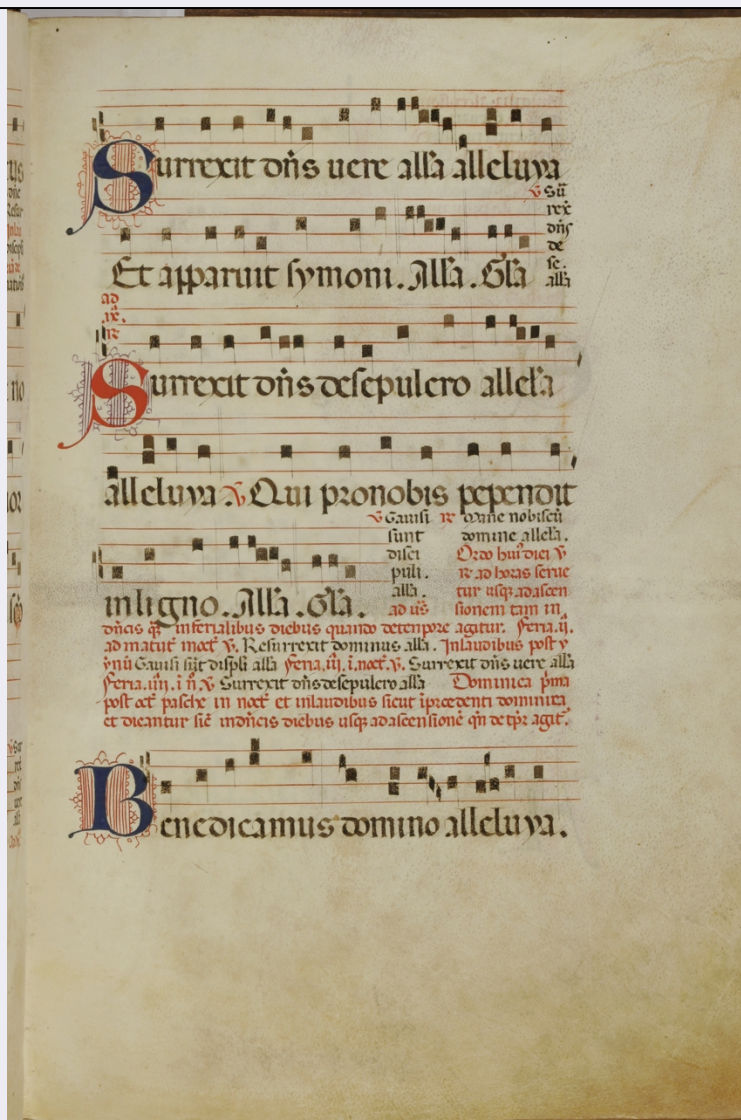 Surrexit dñs uere alła alleluya
v Sur̃
rex̃
dñs
de
se.
alła
Et apparuit symoni. Alła. Gła
ad
re
Surrexit dñs desepulcro allela
alleluya. v Qui pronobis pependit
in ligno. Alła. Gła.
v Gauisi
sunt
disci
puli.
alła.
ad us̃
re Mane nobiscũ
domine allela.
Ordo huĩ diei v
re ad horas serue
tur usq; adascen
sionem tam in
dñcis q̃ inferialibus diebus quando detempore agitur. Feria.ij.
ad matut̃ noct̃ v. Resurrexit dominus alła. Inlaudibus post y
ynũ Gauisi sũt discipłi alła Feria.iij. i. noct̃. v. Surrexit dñs uere alła
Feria.iiij. i ñ. v Surrexit dñs desepulcro alła Dominica p̃ma
post oct̃ pasche in noct̃ et inlaudibus sicut ĩprecedenti dominica
et dicantur sic̃ indñcis diebus usq; adascensionẽ qñ de tp̃r agit̃.
Benedicamus domino alleluya.